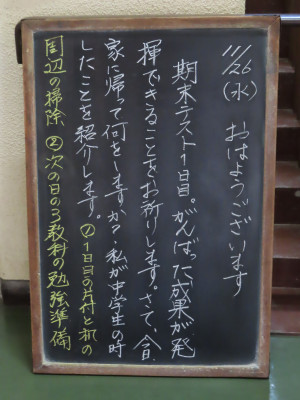 11/26(水) おはようございます
期末テスト1日目。がんばった成果が発
揮できることをお祈りします。さて、今日、
家に帰って何をしますか?私が中学生の時
したことを紹介します。①1日目の片付と机の
周辺の掃除 ②次の日の3教科の勉強準備